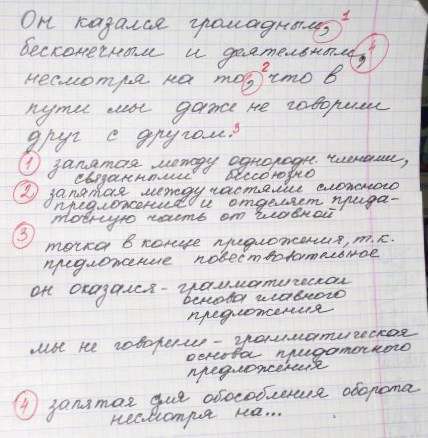 Он казался громадным,¹
бесконечным и деятельным,⁴
несмотря на то,² что в
пути мы даже не говорили
друг с другом.³
① запятая между однородн. членами,
связанными бессоюзно
② запятая между частями сложного
предложения и отделяет прида-
точную часть от главной
③ точка в конце предложения, т.к.
предложение повествовательное
он оказался - грамматическая
основа главного
предложения
мы не говорили - грамматическая
основа придаточного
предложения
④ запятая для обособления оборота
несмотря на...